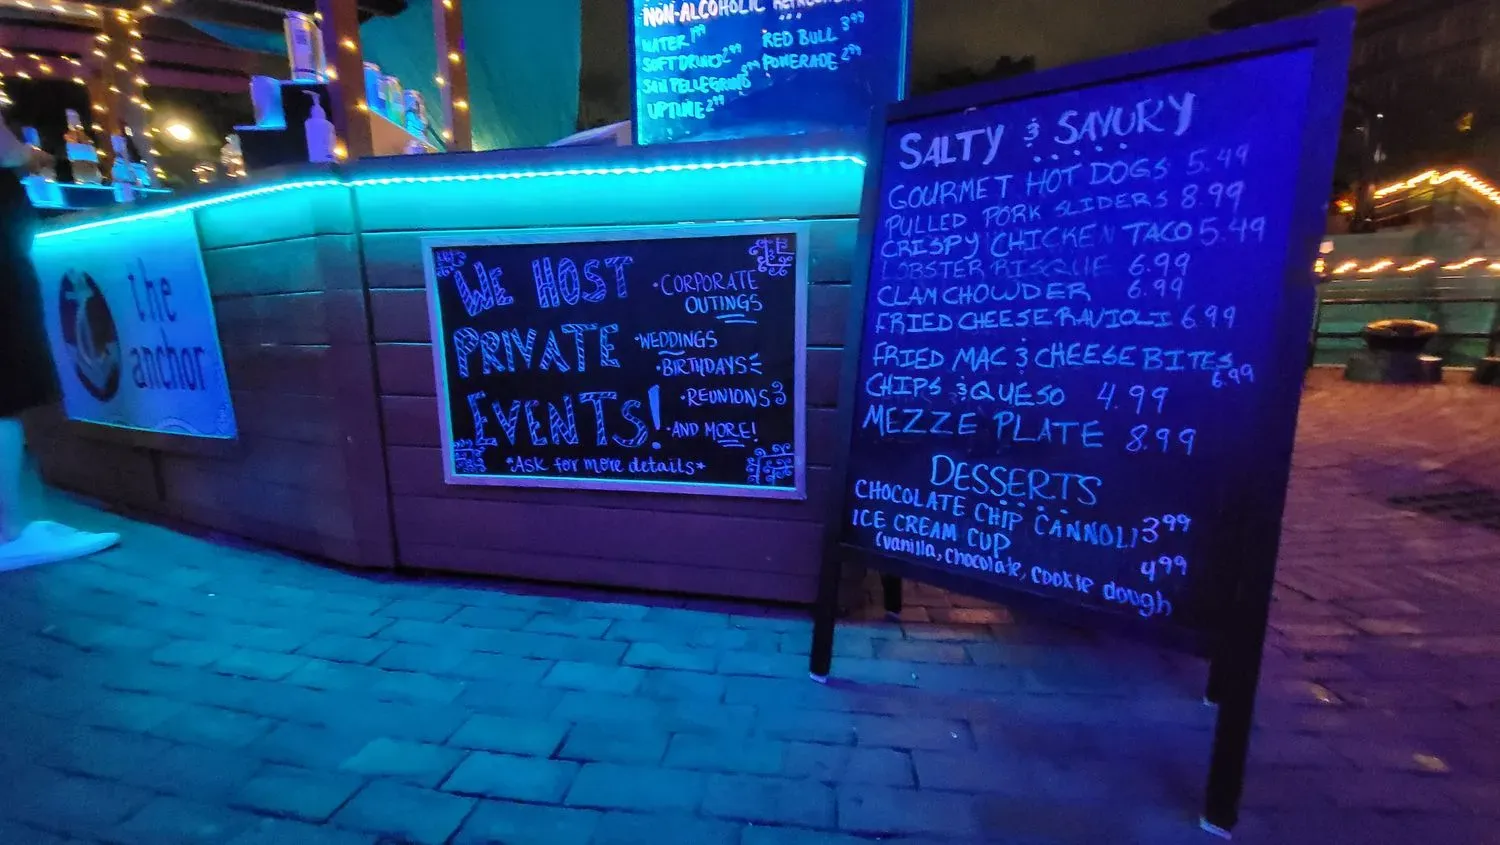 NON-ALCOHOLIC
WATER 1.99
SOFT DRINKS 2.99
SAN PELLEGRINO
UPTIME 2.99
RED BULL 3.99
POWERADE 2.99
the
anchor
WE HOST
PRIVATE
EVENTS!
•CORPORATE
OUTINGS
•WEDDINGS
•BIRTHDAYS
•REUNIONS
•AND MORE!
*Ask for more details*
SALTY & SAVORY
GOURMET HOT DOGS 5.49
PULLED PORK SLIDERS 8.99
CRISPY CHICKEN TACO 5.49
LOBSTER BISQUE 6.99
CLAM CHOWDER 6.99
FRIED CHEESE RAVIOLI 6.99
FRIED MAC & CHEESE BITES
6.99
CHIPS & QUESO 4.99
MEZZE PLATE 8.99
DESSERTS
CHOCOLATE CHIP CANNOLI 3.99
ICE CREAM CUP 4.99
(vanilla, chocolate, cookie dough